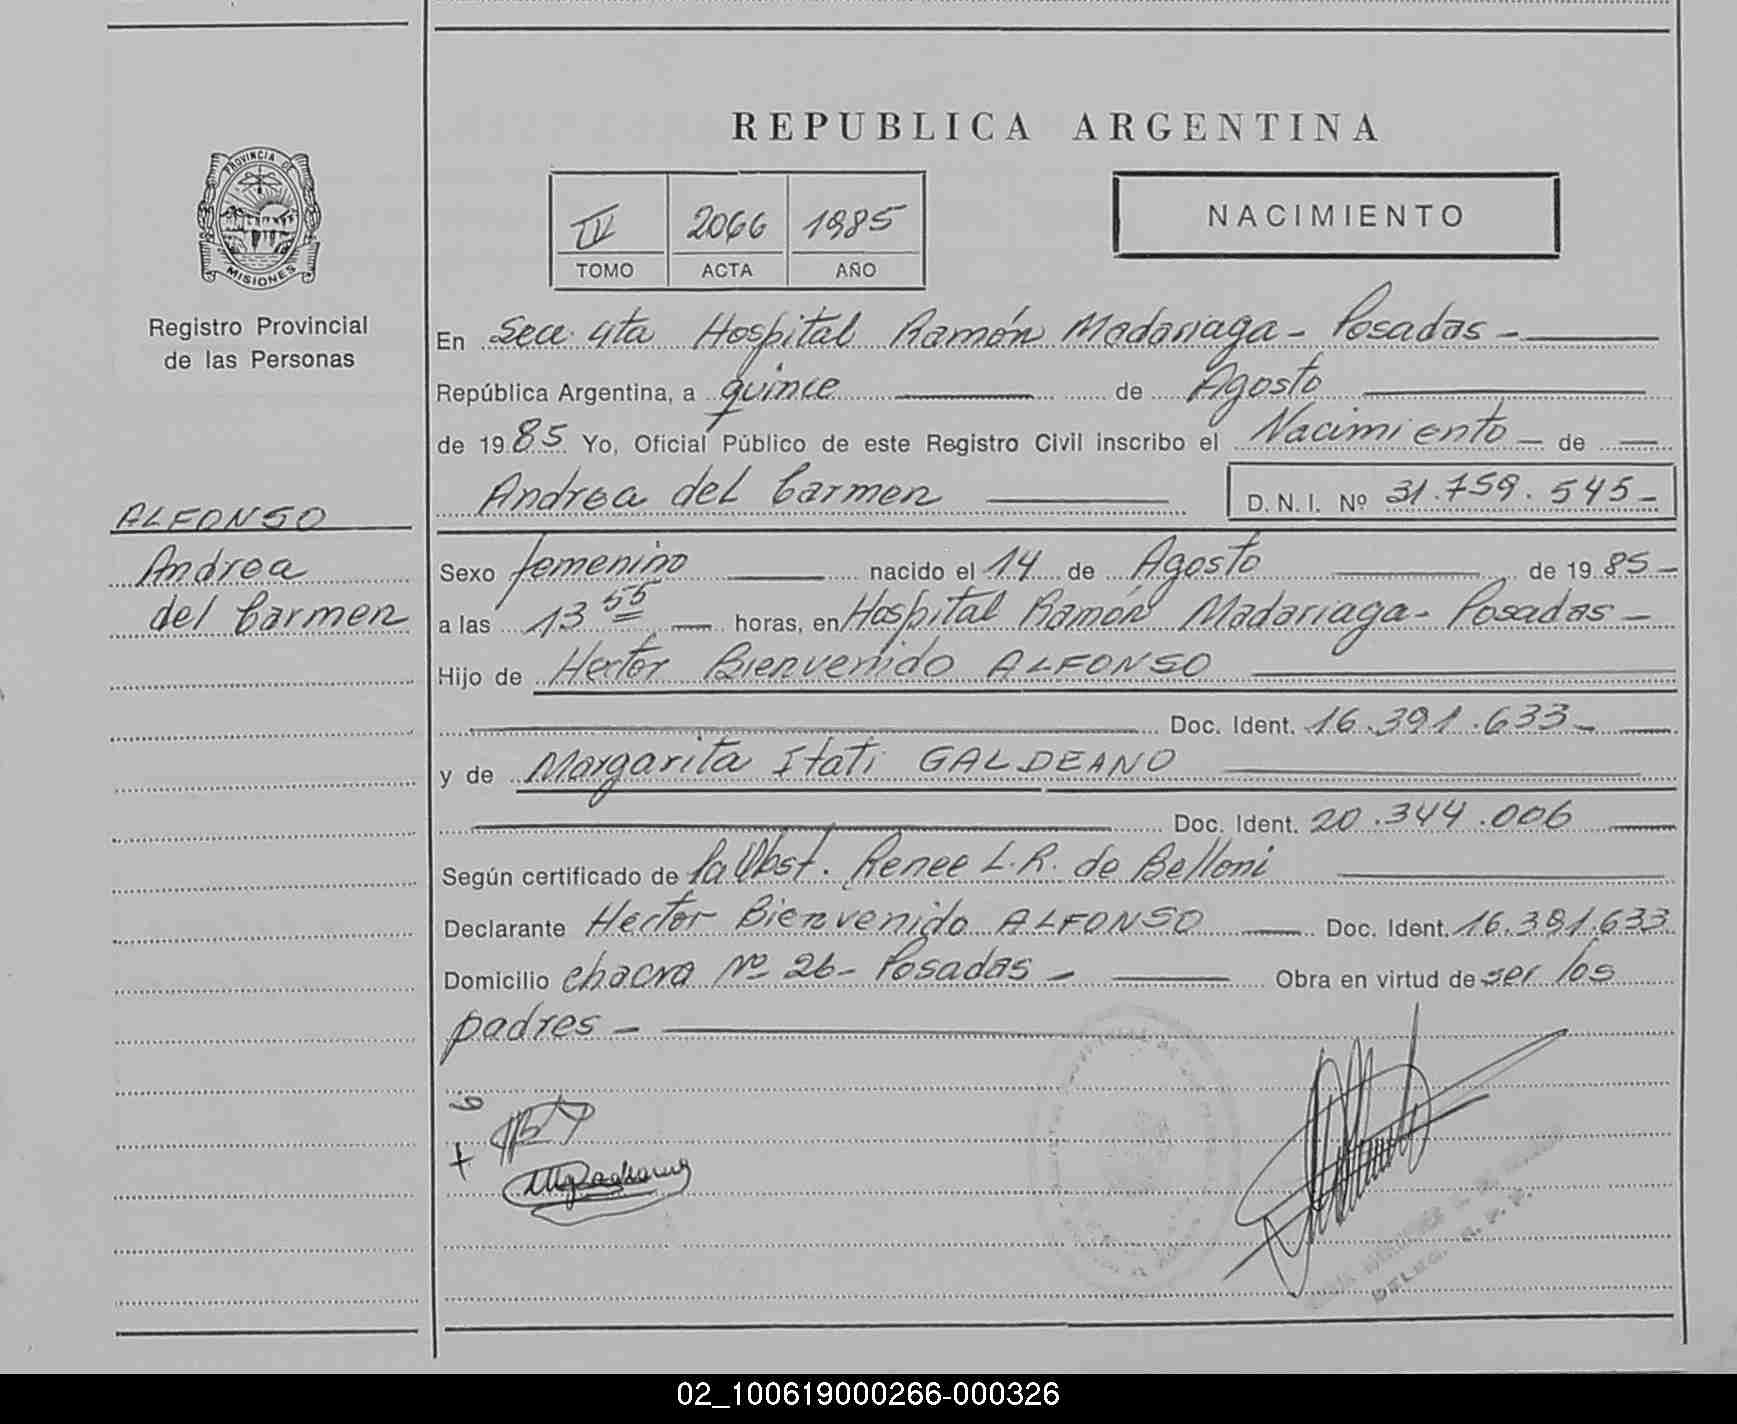 REPUBLICA ARGENTINA
PROVINCIA DE
MISIONES
Registro Provincial
de las Personas
IV 2066 1985
TOMO ACTA AÑO
NACIMIENTO
En Secc. 4ta Hospital Ramón Madariaga - Posadas -
República Argentina, a quince de Agosto
de 1985 Yo, Oficial Público de este Registro Civil inscribo el Nacimiento - de
Andrea del Carmen D.N.I. Nº 31.759.545-
ALFONSO
Andrea
del Carmen
Sexo femenino nacido el 14 de Agosto de 1985-
a las 13 55 horas, en Hospital Ramón Madariaga - Posadas -
Hijo de Hector Bienvenido ALFONSO
Doc. Ident. 16.391.633-
y de Margarita Itati GALDEANO
Doc. Ident. 20.344.006
Según certificado de la Obst. Renee L.R. de Belloni
Declarante Hector Bienvenido ALFONSO Doc. Ident. 16.391.633
Domicilio chacra Nº 26- Posadas - Obra en virtud de ser los
padres -
02_100619000266-000326